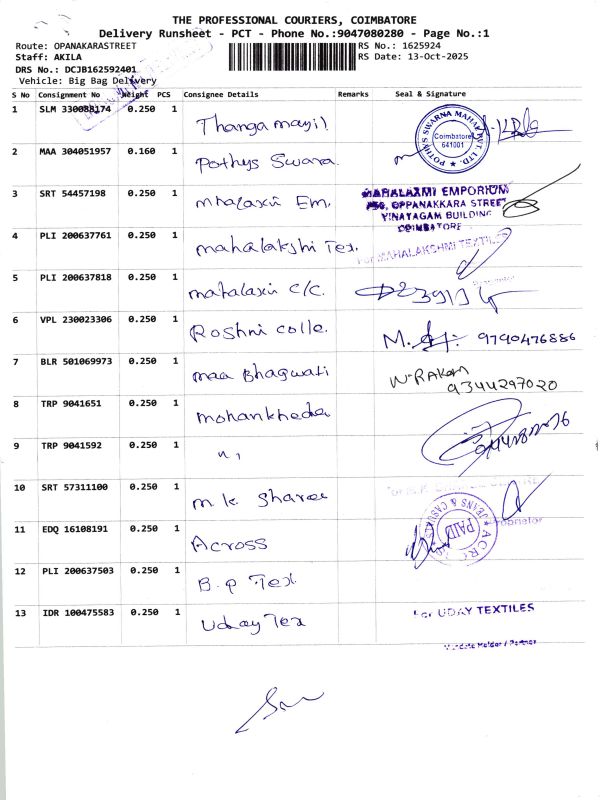 THE PROFESSIONAL COURIERS, COIMBATORE
Delivery Runsheet - PCT - Phone No.:9047080280 - Page No.:1
Route: OPANAKARASTREET RS No.: 1625924
Staff: AKILA RS Date: 13-Oct-2025
DRS No.: DCJB162592401
Vehicle: Big Bag Delivery
S No Consignment No Weight PCS Consignee Details Remarks Seal & Signature
1 SLM 330088174 0.250 1 Thanga mayil
POTHYS SWARNA MAHAL PVT. LTD. Coimbatore 641001
2 MAA 304051957 0.160 1 Pothys Swara
3 SRT 54457198 0.250 1 mhalaxii Em.
MAHALAXMI EMPORIUM
OPPANAKKARA STREET
VINAYAGAM BUILDING
COIMBATORE
4 PLI 200637761 0.250 1 mahalakshmi Tex.
For MAHALAKSHMI TEXTILES
5 PLI 200637818 0.250 1 mahalaxii c/c.
6 VPL 230023306 0.250 1 Roshni colle. M. 9790476886
7 BLR 501069973 0.250 1 maa Bhagwati
9344297020
8 TRP 9041651 0.250 1 mohankheda
9 TRP 9041592 0.250 1 "
10 SRT 57311100 0.250 1 m.k. Sharee
Proprietor
11 EDQ 16108191 0.250 1 Across
JEANS & CASUALS PAID
12 PLI 200637503 0.250 1 B.P Tex
13 IDR 100475583 0.250 1 Uday Tex
For UDAY TEXTILES
Mandate Holder / Partner